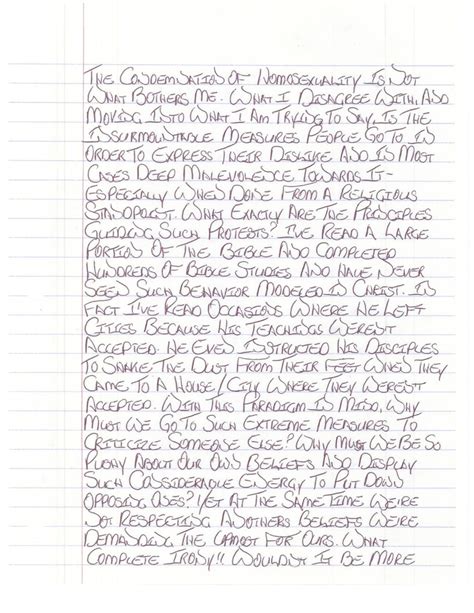 THE CONDEMNATION OF HOMOSEXUALITY IS NOT
WHAT BOTHERS ME. WHAT I DISAGREE WITH, AND
MOVING INTO WHAT I AM TRYING TO SAY, IS THE
INSURMOUNTABLE MEASURES PEOPLE GO TO IN
ORDER TO EXPRESS THEIR DISLIKE AND IN MOST
CASES DEEP MALEVOLENCE TOWARDS IT-
ESPECIALLY WHEN DONE FROM A RELIGIOUS
STANDPOINT. WHAT EXACTLY ARE THE PRINCIPLES
GUIDING SUCH PROTESTS? I'VE READ A LARGE
PORTION OF THE BIBLE AND COMPLETED
HUNDREDS OF BIBLE STUDIES AND HAVE NEVER
SEEN SUCH BEHAVIOR MODELED IN CHRIST. IN
FACT I'VE READ OCCASIONS WHERE HE LEFT
CITIES BECAUSE HIS TEACHINGS WEREN'T
ACCEPTED. HE EVEN INSTRUCTED HIS DISCIPLES
TO SHAKE THE DUST FROM THEIR FEET WHEN THEY
CAME TO A HOUSE/CITY WHERE THEY WEREN'T
ACCEPTED. WITH THIS PARADIGM IN MIND, WHY
MUST WE GO TO SUCH EXTREME MEASURES TO
CRITICIZE SOMEONE ELSE? WHY MUST WE BE SO
PUSHY ABOUT OUR OWN BELIEFS AND DISPLAY
SUCH CONSIDERABLE ENERGY TO PUT DOWN
OPPOSING ONES? YET AT THE SAME TIME WE'RE
NOT RESPECTING ANOTHERS BELIEFS WE'RE
DEMANDING THE UPMOST FOR OURS. WHAT
COMPLETE IRONY!! WOULDN'T IT BE MORE